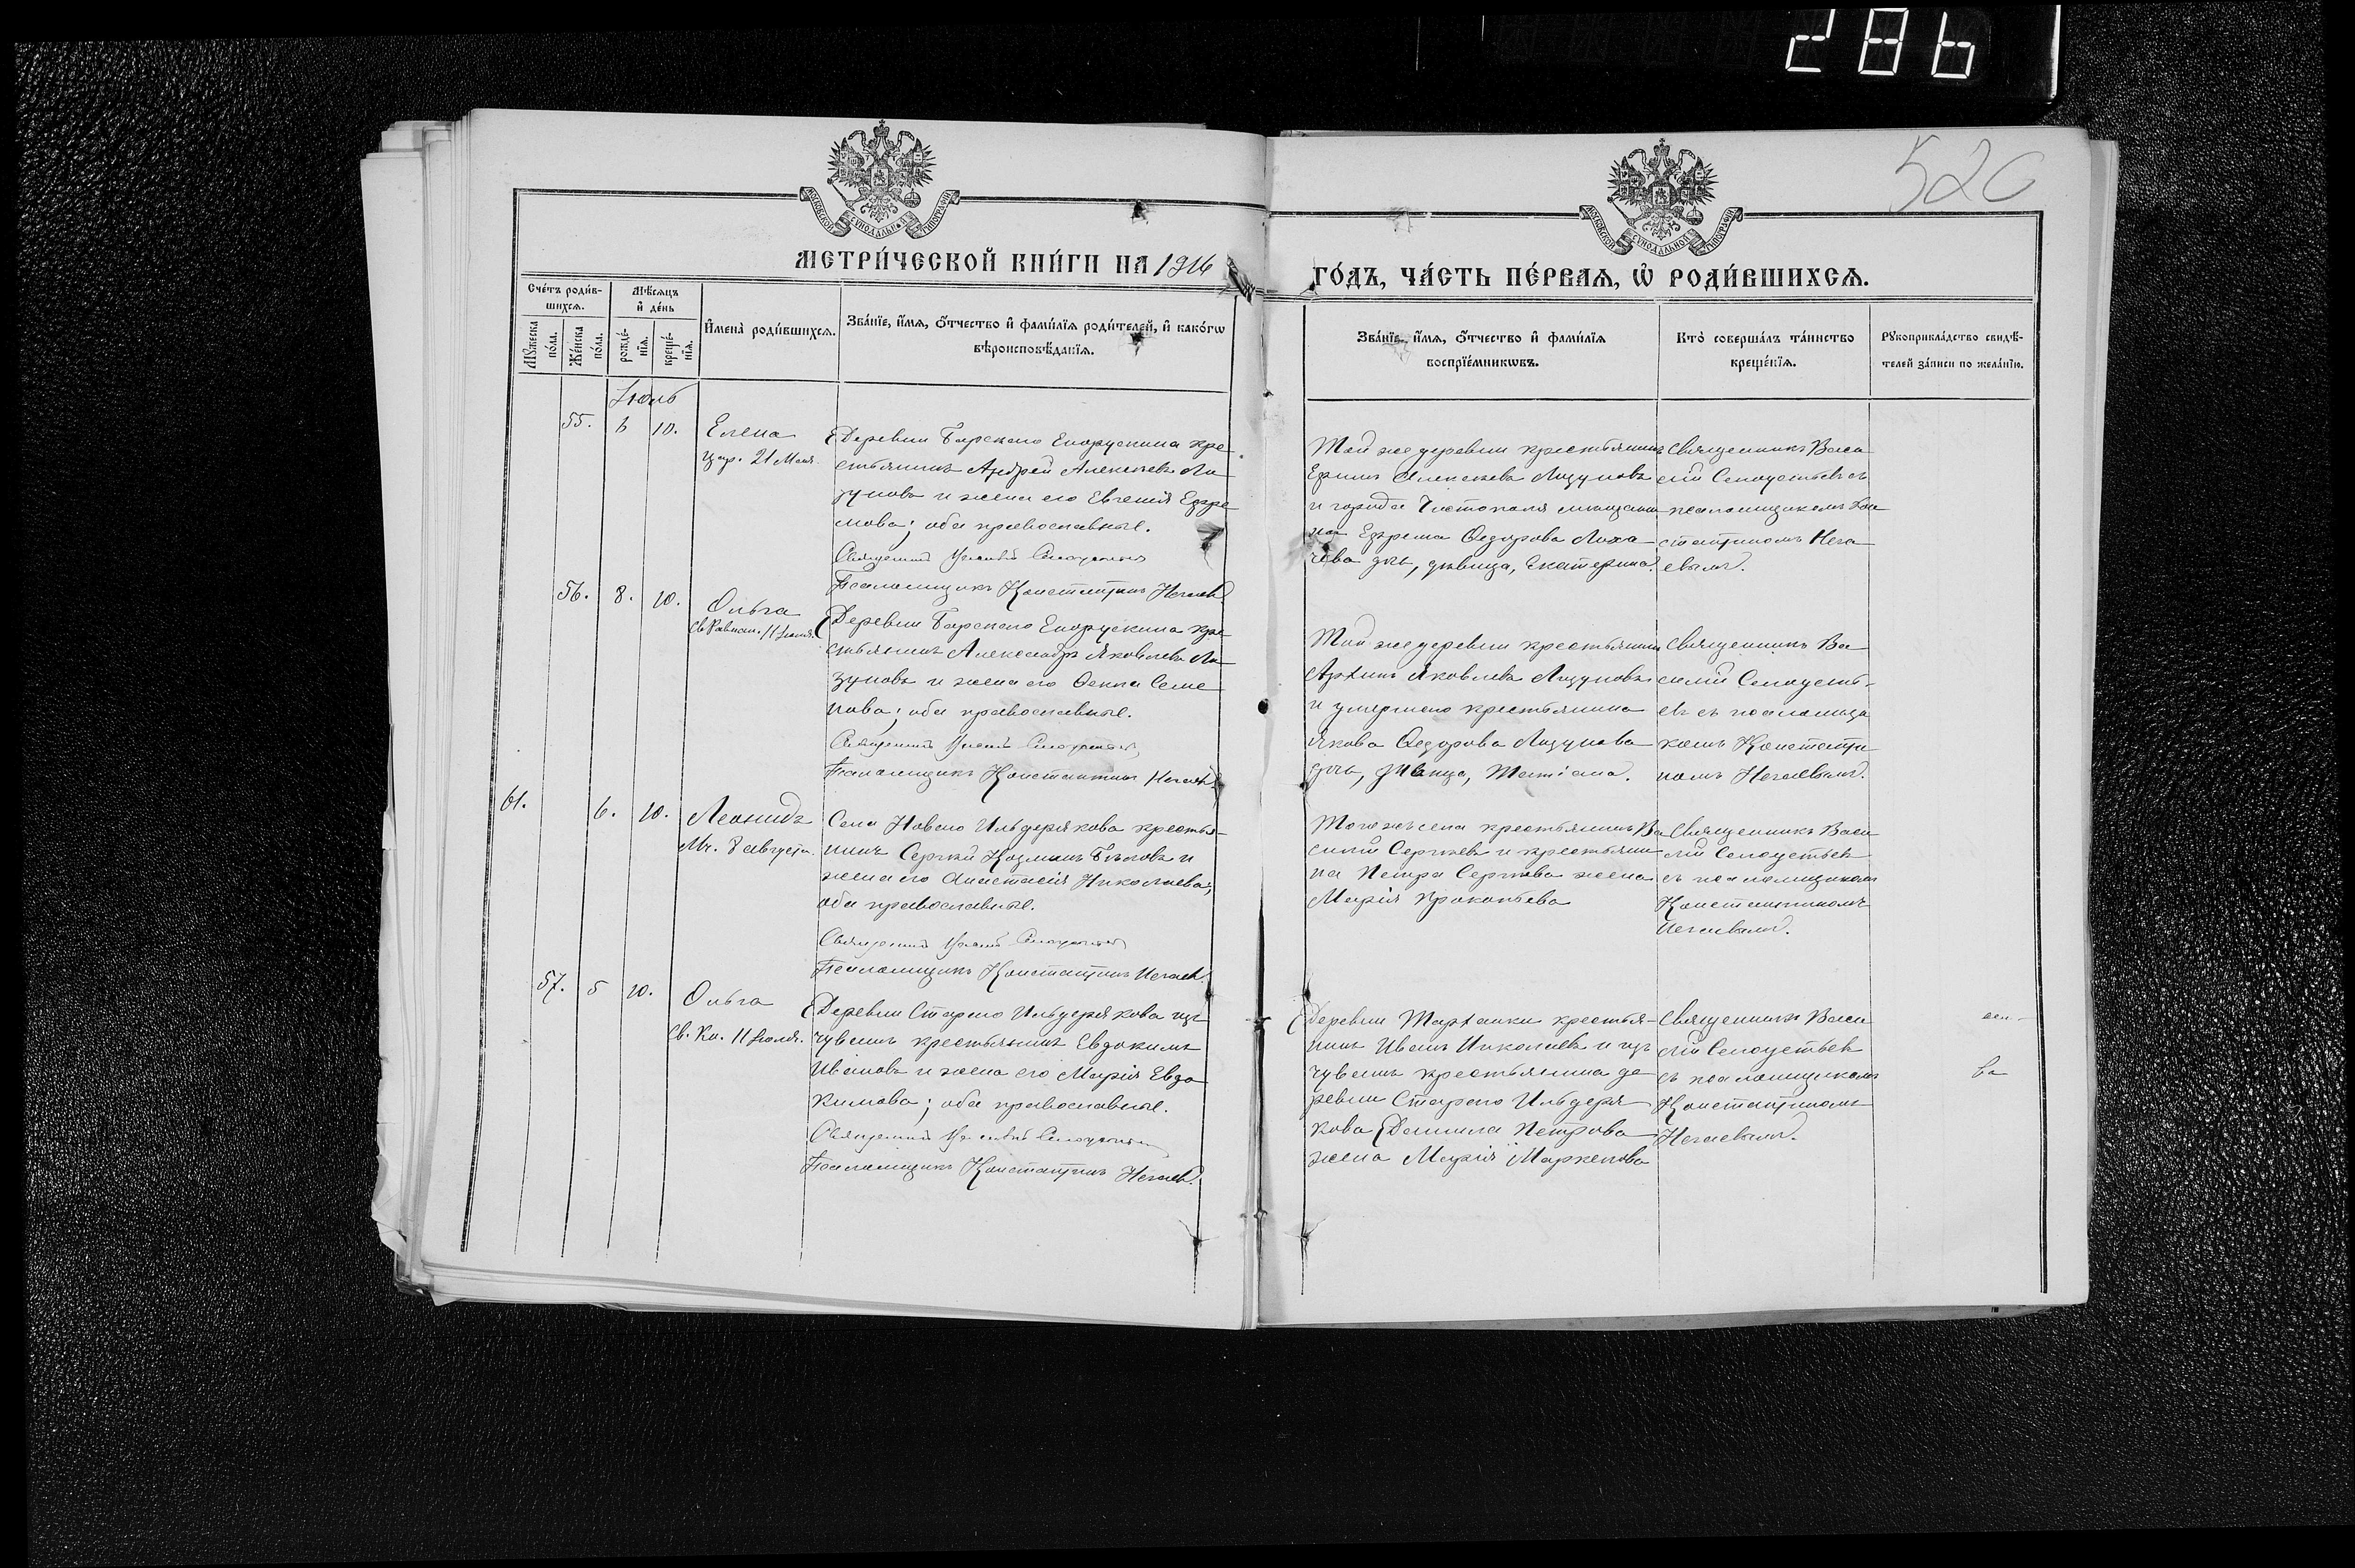 286
520
МОСКОВСКОЙ СѴНОДАЛЬНОЙ ТИПОГРАФІИ
МОСКОВСКОЙ СѴНОДАЛЬНОЙ ТИПОГРАФІИ
МЕТРИ́ЧЕСКОЙ КНИ́ГИ НА 1916
ГО́ДЪ, ЧА́СТЬ ПЕ́РВАЯ, Ѡ РОДИ́ВШИХСЯ.
Сче́тъ роди́в-
шихся.
Мѣсяцъ
и де́нь
Му́жеска
по́ла.
Же́нска
по́ла.
рожде́-
нїя.
креще́-
нїя.
Имена̀ роди́вшихся.
Зва́нїе, и́мя, о́тчество и фами́лїя роди́телей, и како́гѡ
вѣроисповѣ́данїя.
Зва́нїе, и́мя, о́тчество и фами́лїя
воспрїе́мникѡвъ.
Кто̀ соверша́лъ та́инство
креще́нїя.
Рꙋкоприкла́дство свидѣ́-
телей за́писи по жела́нїю.
Іюль
55. 6 10. Елена
Цар. 21 Мая.
Деревни Барскаго Енорускина кре-
стьянинъ Андрей Алексѣевъ Ла-
зуновъ и жена его Евгенія Ефре-
мова; оба православные.
Священникъ
Псаломщикъ Константинъ Нечаевъ
Той же деревни крестьянинъ
Алексѣевъ Лазуновъ
и города Чистополя мѣщани-
на Ефрема Ѳедорова Лиха-
чева дочь, дѣвица, Екатерина.
Священникъ Васи-
лій съ
псаломщикомъ Кон-
стантиномъ Неча-
евымъ.
56. 8. 10. Ольга
св. Равноап. 11 Іюля.
Деревни Барскаго Енорускина кре-
стьянинъ Александръ Яковлевъ Ла-
зуновъ и жена его Ѳекла Семе-
нова; оба православные.
Священникъ
Псаломщикъ Константинъ Нечаевъ
Той же деревни крестьянинъ
Архипъ Яковлевъ Лазуновъ
и умершаго крестьянина
Якова Ѳедорова Лазунова
дочь, дѣвица, Татіана.
Священникъ Ва-
силій
въ съ псаломщи-
комъ Константи-
номъ Нечаевымъ.
61. 6. 10. Леонидъ
Мч. 8 августа.
Села Новаго Ильдерякова крестья-
нинъ Сергѣй Козминъ Бѣловъ и
жена его Анастасія Николаева;
оба православные.
Священникъ
Псаломщикъ Константинъ Нечаевъ.
Того же села крестьянинъ Ва-
силій Сергѣевъ и крестьяни-
на Петра Сергѣева жена
Марія Прокопьева
Священникъ Васи-
лій
съ псаломщикомъ
Константиномъ
Нечаевымъ.
57. 5 10. Ольга
Св. Кн. 11 Іюля.
Деревни Стараго Ильдерякова изъ
чувашъ крестьянинъ Евдокимъ
Ивановъ и жена его Марія Евдо-
кимова; оба православные.
Священникъ
Псаломщикъ Константинъ Нечаевъ.
Деревни Тарханки крестья-
нинъ Иванъ Николаевъ и изъ
чувашъ крестьянина де-
ревни Стараго Ильдеря-
кова Даниила Петрова
жена Марія Маркелова
Священникъ Васи-
лій
съ псаломщикомъ
Константиномъ
Нечаевымъ.
ва